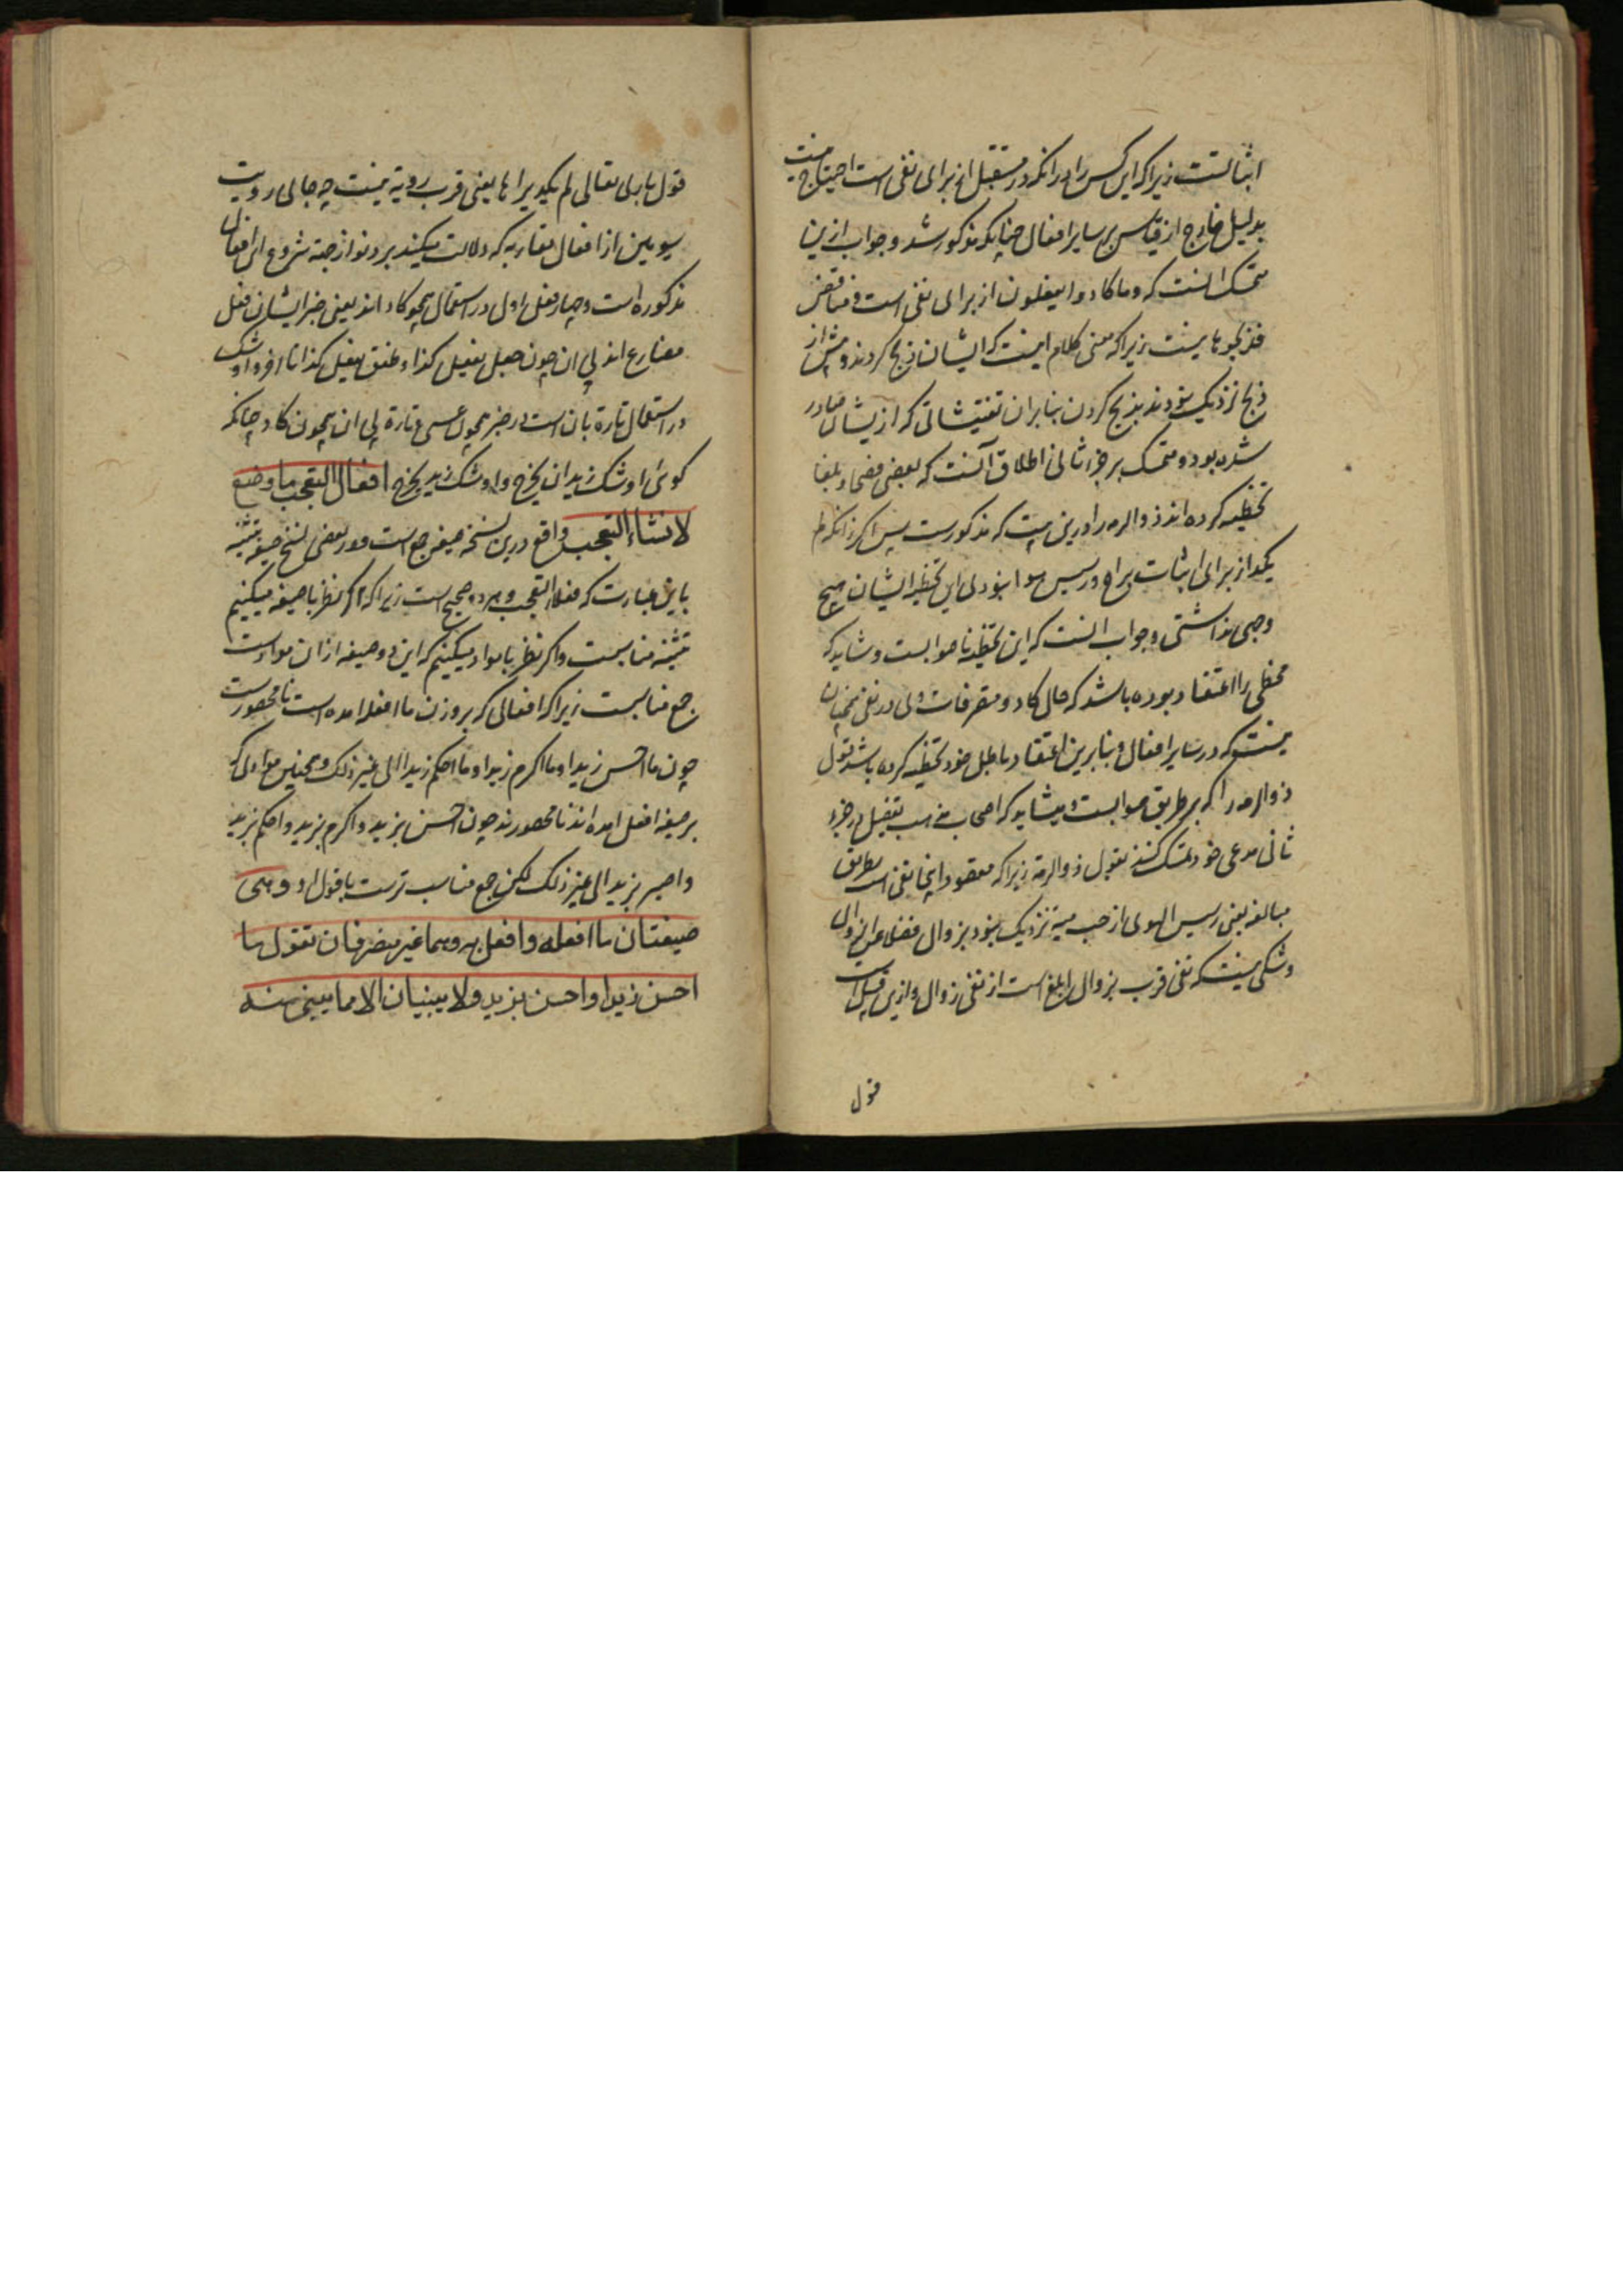 اثباتست زیرا که این کس را در آنکه در مستقبل از برای نفی است احتیاج نیست
بدلیل خارج از قیاس بر سایر افعال چنانکه مذکور شد و جواب ازین
تمسک آنست که وما کادوا یفعلون از برای نفی است و مناقض
فذبحوها نیست زیرا که معنی کلام اینست که ایشان ذبح کردند و پیش از
ذبح نزدیک نبودند بذبح کردن بنابران تفتیشاتی که ازیشان صادر
شده بود و متمسک بر جزء ثانی اطلاق آنست که بعضی فصحا و بلغا
تخطیه کرده‌اند ذو الرمه را درین بیت که مذکورست پس اگر زانکه لم
یکد از برای اثبات براح رسیس هوا نبودی این تخطیه ایشان هیچ
وجهی نداشتی و جواب آنست که این تخطیه ناصوابست و شاید که
مخطی را اعتقاد بوده باشد که حال کاد و متصرفات وی در نفی همچنان
نیست که در سایر افعال و بنابرین اعتقاد باطل خود تخطیه کرده باشد قول
ذو الرمه را که بر طریق صوابست و میشاید که اصحاب مذهب تفصیل در جزء
ثانی مدعی خود تمسک کنند بقول ذو الرمة زیرا که مقصود اینجا نفی است بطریق
مبالغه یعنی رسیس الهوی از حب میه نزدیک نبود بزوال فضلا عن الزوال
و شکی نیست که نفی قرب بزوال ابلغ است از نفی زوال و ازین قبیل است
قول
قول باری تعالی لم یکد یراها یعنی قرب رویة نیست چه جای رویت
سیومین از افعال مقاربه که دلالت میکنند بر دنو از جهة شروع این افعال
مذکوره است و چهار فعل اول در استعمال همچو کاد اند یعنی خبر ایشان فعل
مضارع اند بی ان چون جعل یفعل کذا و طفق یفعل کذا تا اخر و اوشک
در استعمال تارة بان است در خبر همچون عسی و تارة بی ان همچون کاد چنانکه
کوئی اوشک زید ان یخرج و اوشک زید یخرج افعال التعجب ما وضع
لانشاء التعجب واقع درین نسخه صیغه جمع است و در بعضی نسخ صیغه تثنیه
باین عبارت که فعلا التعجب و هر دو صحیح است زیرا که اگر نظر با صیغه میکنیم
تثنیه مناسبست و اگر نظر با مواد میکنیم که این دو صیغه از ان مواد است
جمع مناسبست زیرا که افعالی که بر وزن ما افعله امده است نامحصورست
چون ما احسن زیدا و ما اکرم زیدا و ما احکم زیدا الی غیر ذلک و همچنین موادی که
بر صیغه افعل امده‌اند نامحصورند چون احسن بزید و اکرم بزید و احکم بزید
و اصبر بزید الی غیر ذلک لکن جمع مناسب ترست با قول او و هی
صیغتان ما افعله وافعل به وهما غیر متصرفان تقول ما
احسن زیدا واحسن بزید ولا یبنیان الا مما یبنی منه